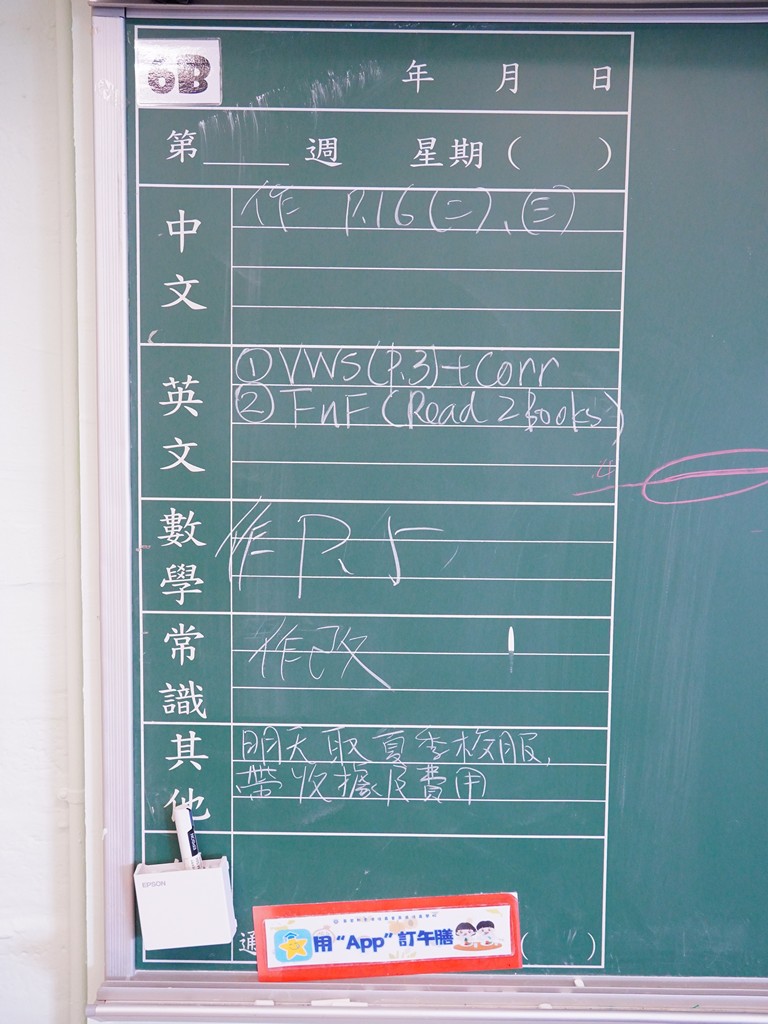 6B
年 月 日
第____週 星期( )
中文
作 P.16(二)、(三)
英文
① VWS(P.3)+Corr
② FnF (Read 2 Books)
數學
作 P.5
常識
作改
其他
明天取夏季校服,
帶收據及費用
EPSON
用“App”訂午膳
通 ( )